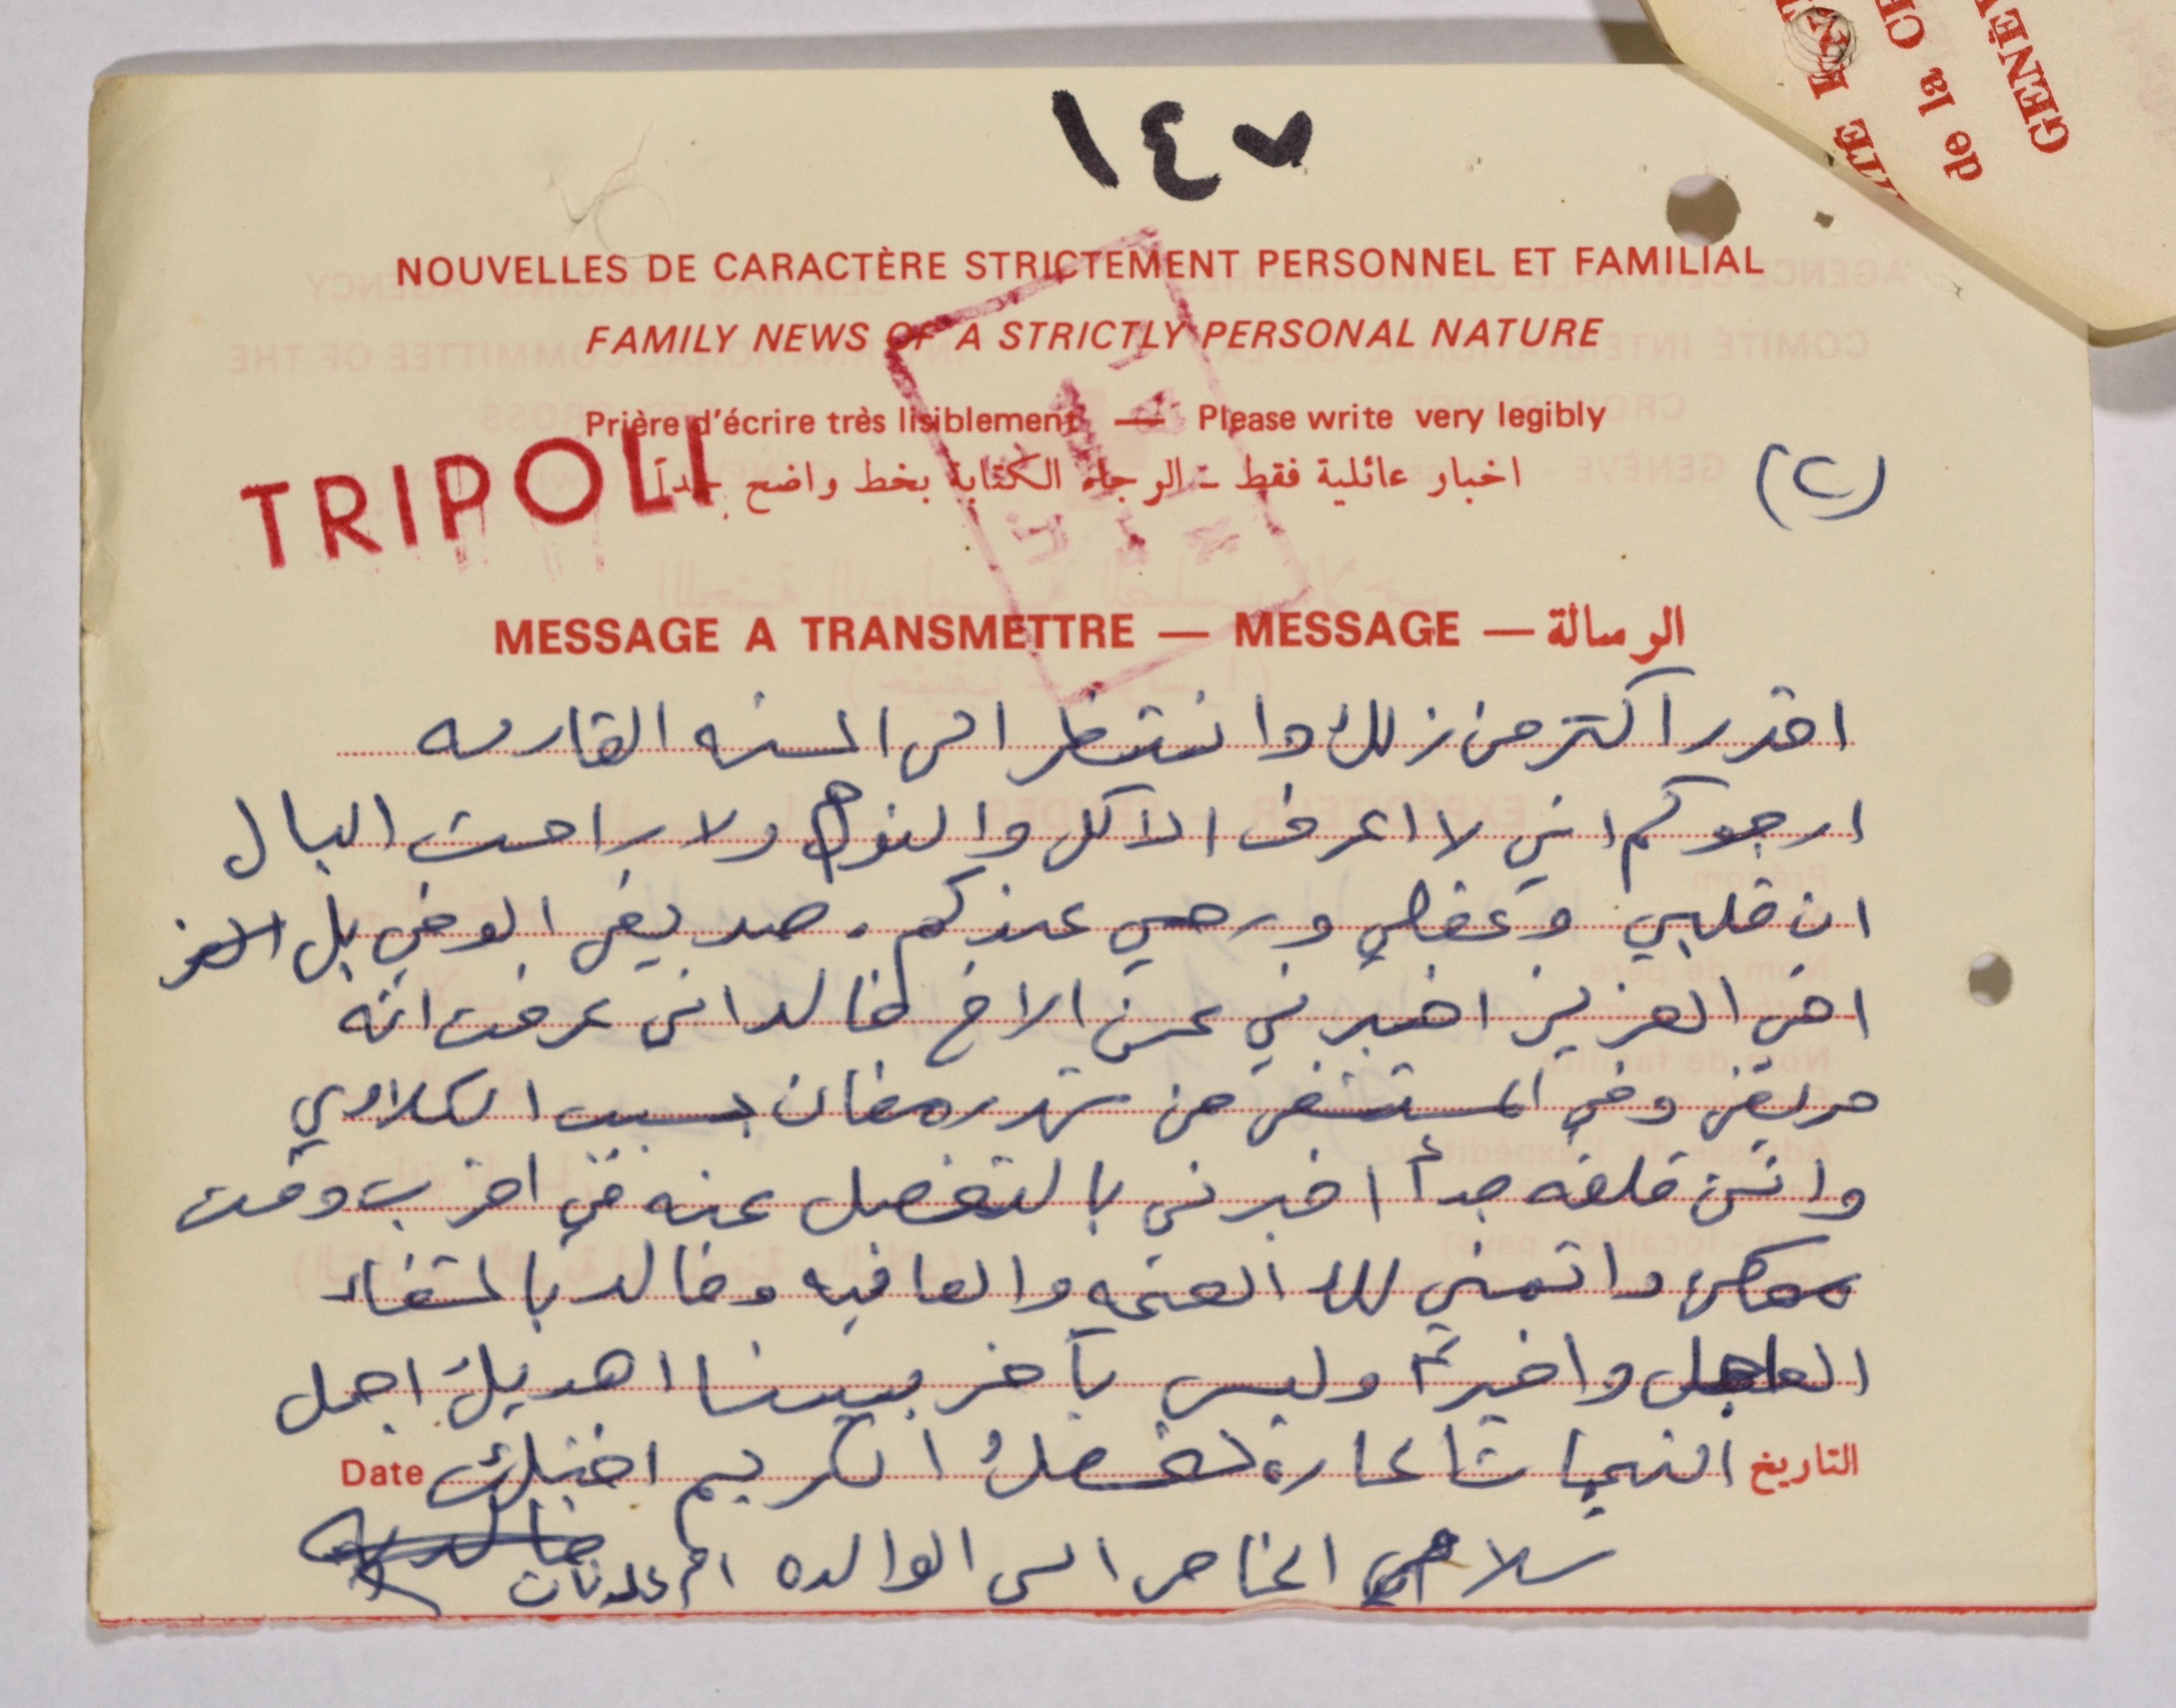 ١٤٧
NOUVELLES DE CARACTÈRE STRICTEMENT PERSONNEL ET FAMILIAL
FAMILY NEWS OF A STRICTLY PERSONAL NATURE
Prière d'écrire très lisiblement — Please write very legibly
اخبار عائلية فقط - الرجاء الكتابة بخط واضح جداً
(٢)
TRIPOLI
MESSAGE A TRANSMETTRE — MESSAGE — الرسالة
اقدر اكتر من زلك وا نتنظر الى السنه القادمه
ارجوكم اني لا اعرف الاكل والنوم ولا راحت البال
ان قلبي وعقلي ورحي عندكم. صديقي الوفي بل
اخي العزيز اخبرني عن الاخ خالد اني عرفت انه
مريض وفي المستشفى من شهر رمضان بسبب الكلاوي
وانني قلقه جداً اخبرني بالتفصل عنه في اقرب وقت
ممكن واتمنى للك الصحه والعافيه وخالد بالشفاء
العاجل واخيراً وليس بآخر بيننا اهديك اجمل
التاريخ التحيا تا عارة لشخصك الكريم اختك Date
سلامي الخاص الى الوالده ام عدنان
ITÉ
de la
GENÈV